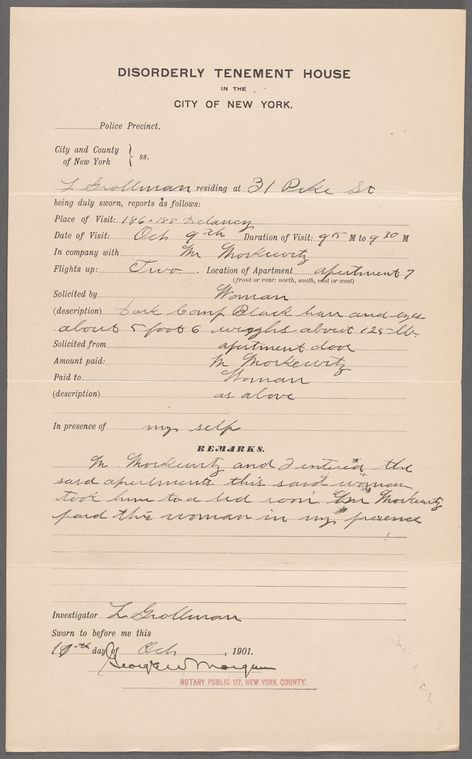 DISORDERLY TENEMENT HOUSE
IN THE
CITY OF NEW YORK.
Police Precinct.
City and County
of New York } ss.
L Grollman residing at 31 Pike St
being duly sworn, reports as follows:
Place of Visit: 186-188 Delancy
Date of Visit: Oct 9th Duration of Visit: 9 15 M to 9 30 M
In company with Mr Morkewitz
Flights up: Two Location of Apartment apartment 7
(front or rear: north, south, east or west)
Solicited by Woman
(description) Dark Comp Black hair and eyes
about 5 foot 6 weighs about 125 lb.
Solicited from apartment door
Amount paid: M Morkewitz
Paid to Woman
(description) as above
In presence of my self
REMARKS.
M Morkewitz and I entered the
said apartments this said woman
took him to a bed room Morkewitz
paid this woman in my presence
Investigator L Grollman
Sworn to before me this
day of Oct , 1901.
George W Morgan
NOTARY PUBLIC 117, NEW YORK COUNTY.